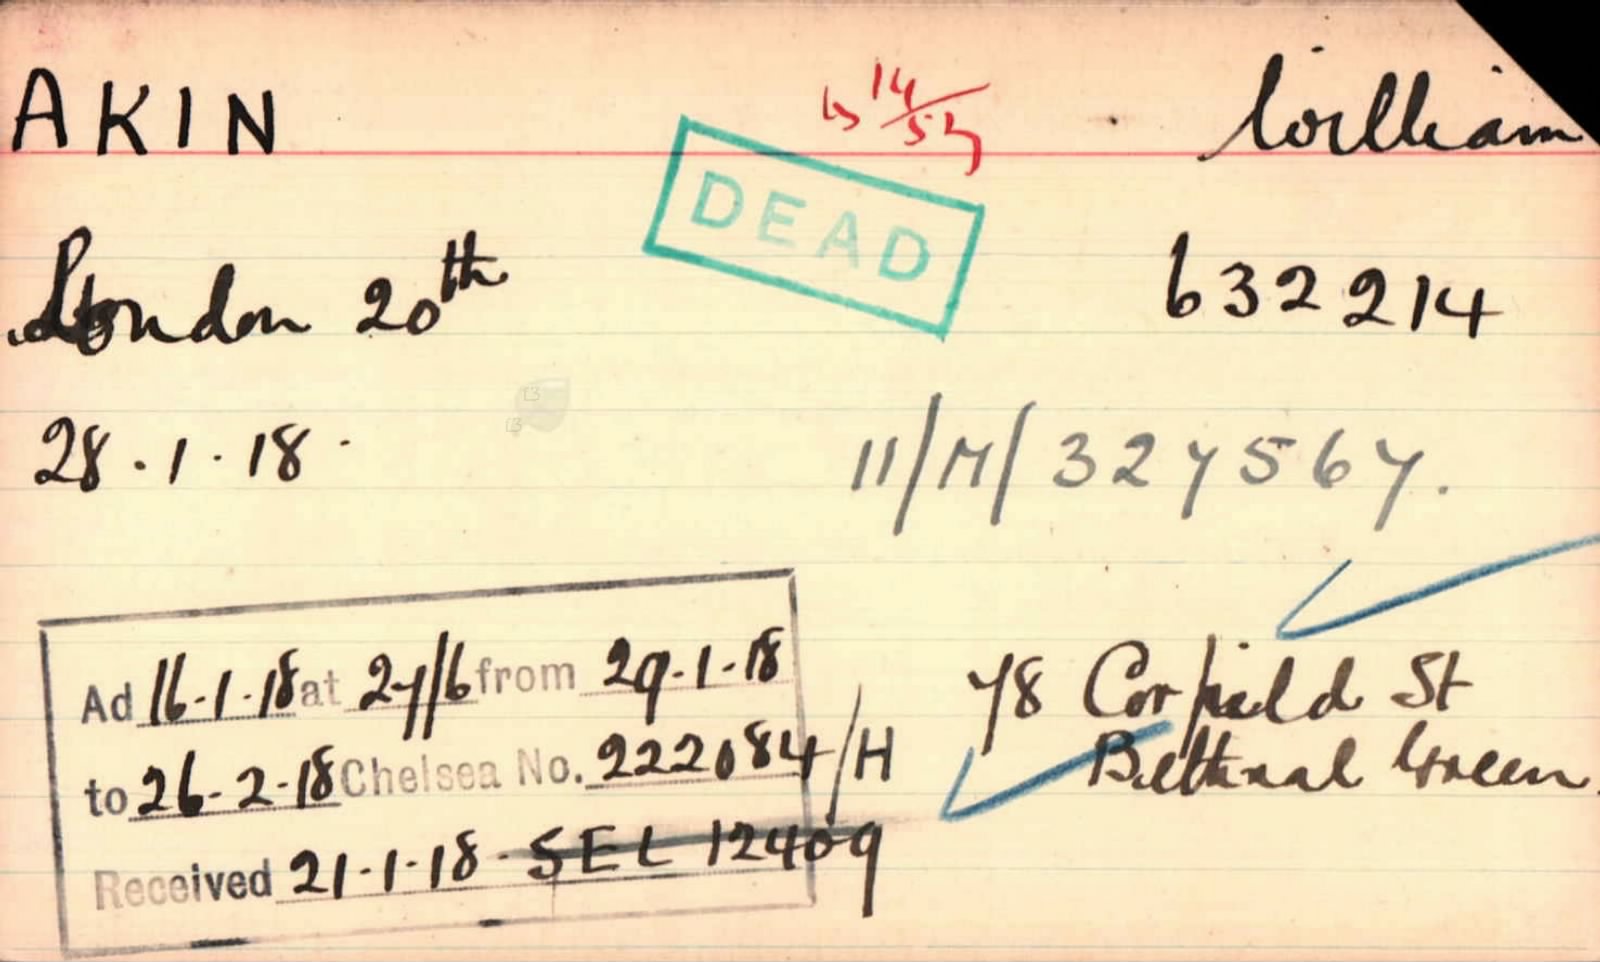 AKIN 14/57 William
DEAD
London 20th 632214
28.1.18. 11/M/327567.
Ad 16.1.18 at 27/6 from 29.1.18
to 26.2.18 Chelsea No. 222084/H
Received 21.1.18. SEL 12409
78 Corfield St
Bethnal Green.